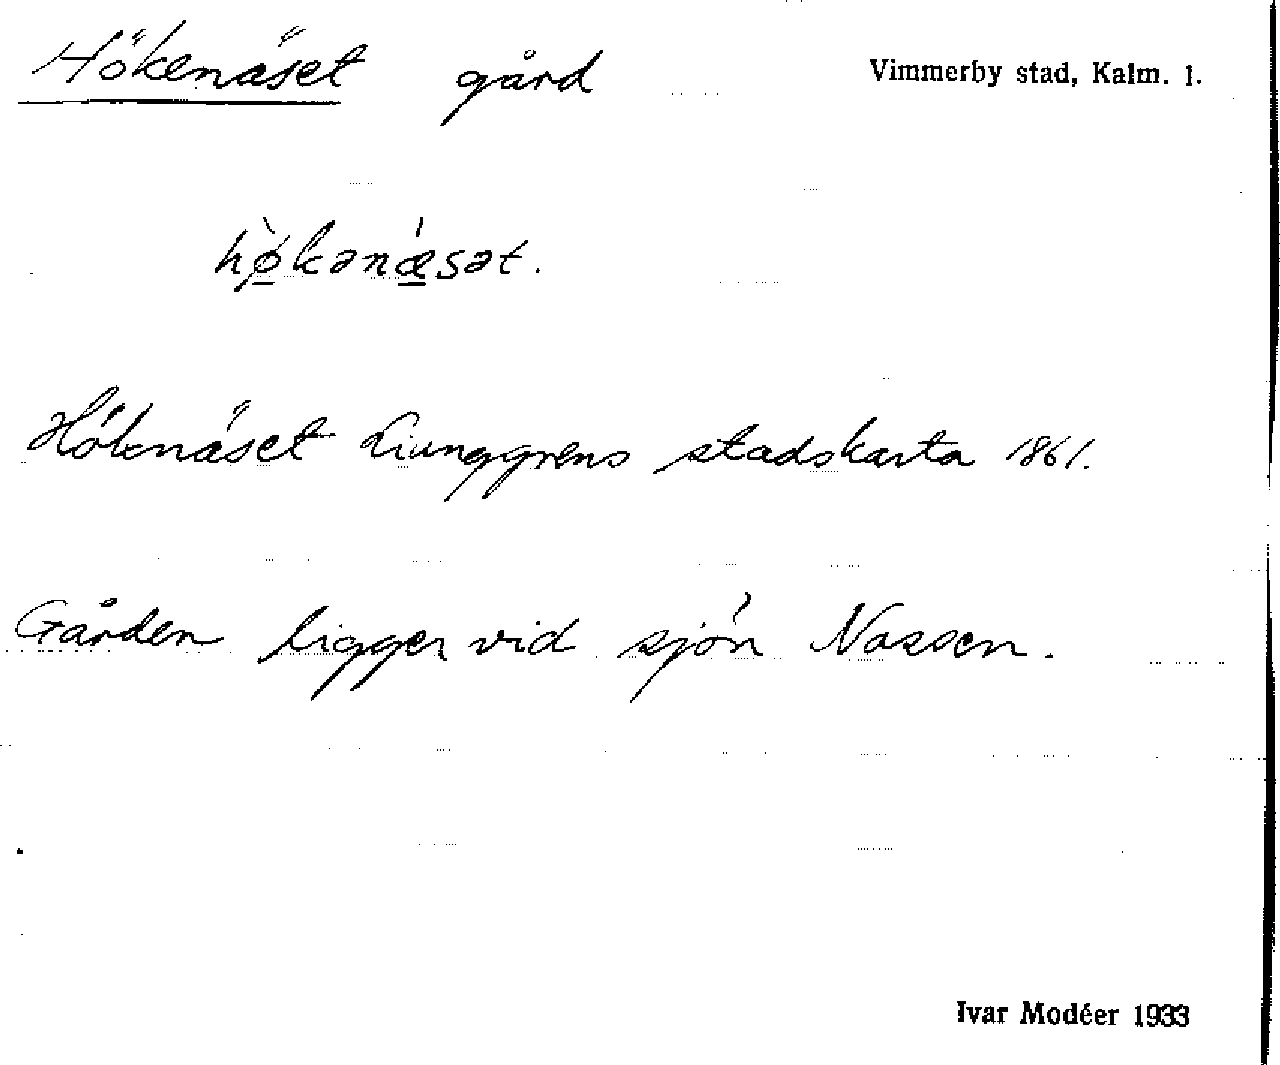 Hökenäset gård
Vimmerby stad, Kalm. l.
hø̀kənǽsət.
Höknäset Liunggrens stadskarta 1861.
Gården ligger vid sjön Nossen.
Ivar Modéer 1933